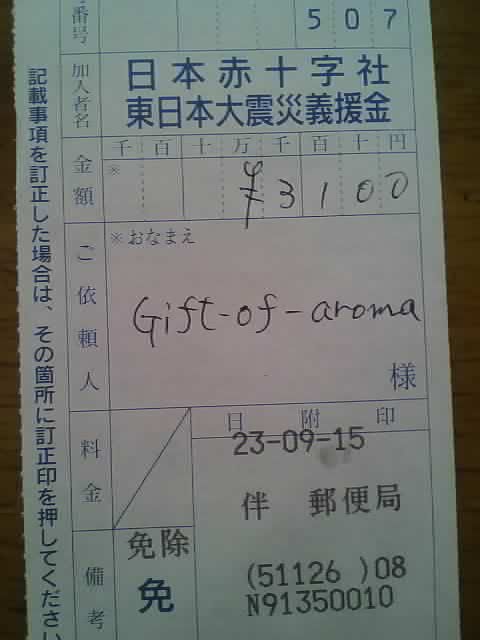 番号 507
加入者名 日本赤十字社
東日本大震災義援金
金額 千百十万千百十円
※ ¥3100
ご依頼人 ※おなまえ
Gift-of-aroma
様
料金 日附印
23-09-15
伴 郵便局
免除
備考 免
(51126 )08
N91350010
記載事項を訂正した場合は、その箇所に訂正印を押してください